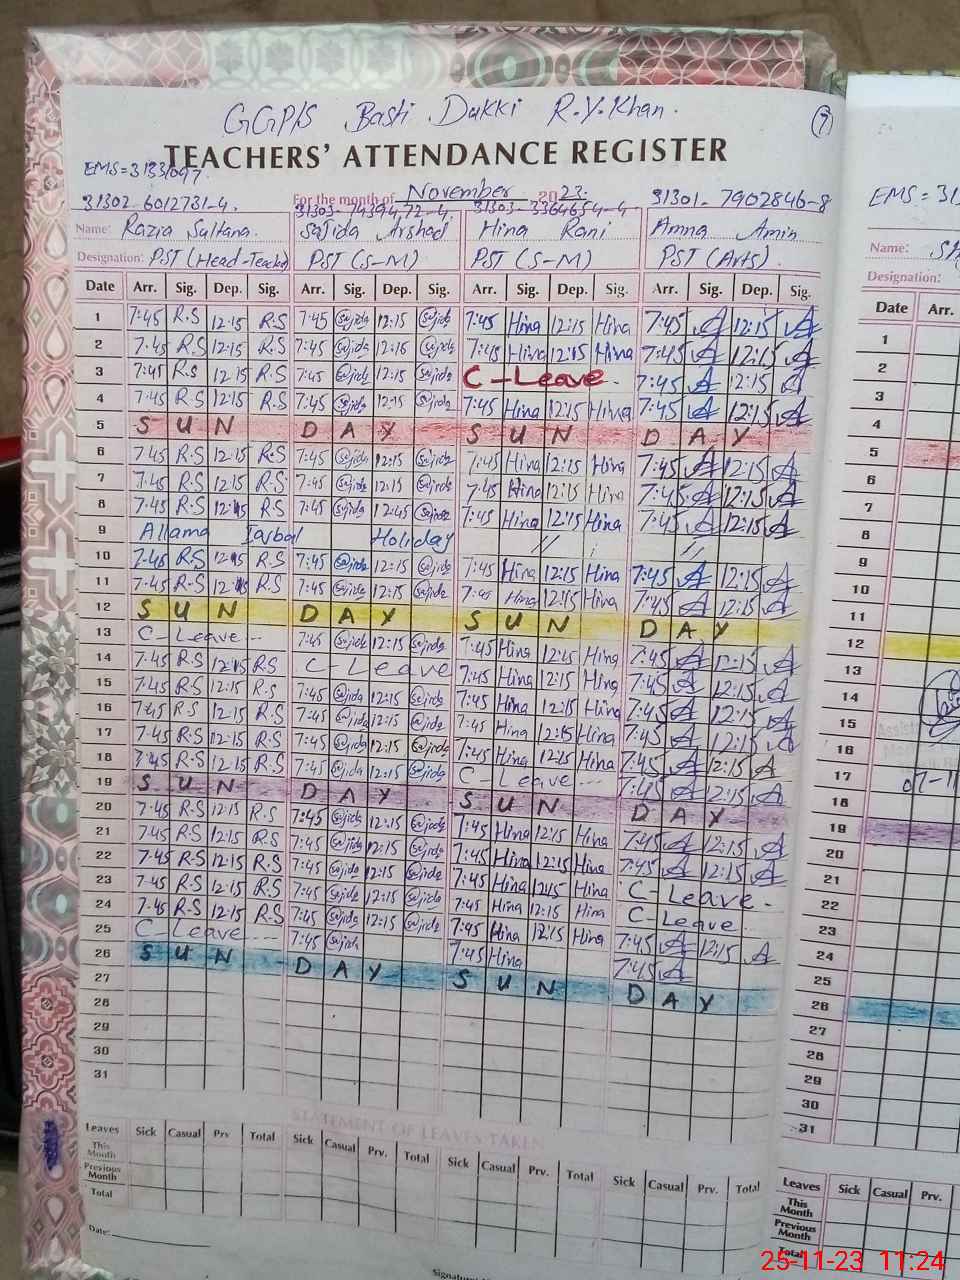 GGP/S Basti Dukki R.Y.Khan. (9)
TEACHERS' ATTENDANCE REGISTER
EMS=31331097.
For the month of November 2023.
31302-6012731-4. 31303-1439472-4 31303-3364654-4 31301-7902846-8
Name: Razia Sultana. Sajida Arshad Hina Rani Amna Amin
Designation: PST (Head-Teacher) PST (S-M) PST (S-M) PST (Arts).
Date Arr. Sig. Dep. Sig. Arr. Sig. Dep. Sig. Arr. Sig. Dep. Sig. Arr. Sig. Dep. Sig.
1 7:45 R.S 12:15 R.S 7:45 Sajida 12:15 Sajida 7:45 Hina 12:15 Hina 7:45 A 12:15 A
2 7:45 R.S 12:15 R.S 7:45 Sajida 12:15 Sajida 7:45 Hina 12:15 Hina 7:45 A 12:15 A
3 7:45 R.S 12:15 R.S 7:45 Sajida 12:15 Sajida C-Leave. 7:45 A 12:15 A
4 7:45 R.S 12:15 R.S 7:45 Sajida 12:15 Sajida 7:45 Hina 12:15 Hina 7:45 A 12:15 A
5 S U N D A Y S U N D A Y
6 7:45 R.S 12:15 R.S 7:45 Sajida 12:15 Sajida 7:45 Hina 12:15 Hina 7:45 A 12:15 A
7 7:45 R.S 12:15 R.S 7:45 Sajida 12:15 Sajida 7:45 Hina 12:15 Hina 7:45 A 12:15 A
8 7:45 R.S 12:15 R.S 7:45 Sajida 12:45 Sajida 7:45 Hina 12:15 Hina 7:45 A 12:15 A
9 Allama Iqbal Holiday // //
10 7:45 R.S 12:15 R.S 7:45 Sajida 12:15 Sajida 7:45 Hina 12:15 Hina 7:45 A 12:15 A
11 7:45 R.S 12:15 R.S 7:45 Sajida 12:15 Sajida 7:45 Hina 12:15 Hina 7:45 A 12:15 A
12 S U N D A Y S U N D A Y
13 C-Leave 7:45 Sajida 12:15 Sajida 7:45 Hina 12:15 Hina 7:45 A 12:15 A
14 7:45 R.S 12:15 R.S C-Leave 7:45 Hina 12:15 Hina 7:45 A 12:15 A
15 7:45 R.S 12:15 R.S 7:45 Sajida 12:15 Sajida 7:45 Hina 12:15 Hina 7:45 A 12:15 A
16 7:45 R.S 12:15 R.S 7:45 Sajida 12:15 Sajida 7:45 Hina 12:15 Hina 7:45 A 12:15 A
17 7:45 R.S 12:15 R.S 7:45 Sajida 12:15 Sajida 7:45 Hina 12:15 Hina 7:45 A 12:15 A
18 7:45 R.S 12:15 R.S 7:45 Sajida 12:15 Sajida C-Leave 7:45 A 12:15 A
19 S U N D A Y S U N D A Y
20 7:45 R.S 12:15 R.S 7:45 Sajida 12:15 Sajida 7:45 Hina 12:15 Hina 7:45 A 12:15 A
21 7:45 R.S 12:15 R.S 7:45 Sajida 12:15 Sajida 7:45 Hina 12:15 Hina 7:45 A 12:15 A
22 7:45 R.S 12:15 R.S 7:45 Sajida 12:15 Sajida 7:45 Hina 12:15 Hina C-Leave.
23 7:45 R.S 12:15 R.S 7:45 Sajida 12:15 Sajida 7:45 Hina 12:15 Hina C-Leave
24 7:45 R.S 12:15 R.S 7:45 Sajida 12:15 Sajida 7:45 Hina 12:15 Hina 7:45 A 12:15 A
25 C-Leave 7:45 Sajida 7:45 Hina 7:45 A
26 S U N D A Y S U N D A Y
27
28
29
30
31
STATEMENT OF LEAVES TAKEN
Leaves Sick Casual Prv Total Sick Casual Prv. Total Sick Casual Prv. Total Sick Casual Prv. Total
This Month
Previous Month
Total
Date:
EMS=31
Name:
Designation:
Date Arr.
1
2
3
4
5
6
7
8
9
10
11
12
13
14
15
16
17
18
19
20
21
22
23
24
25
26
27
28
29
30
31
Leaves Sick Casual Prv.
This Month
Previous Month
Total
25-11-23 11:24